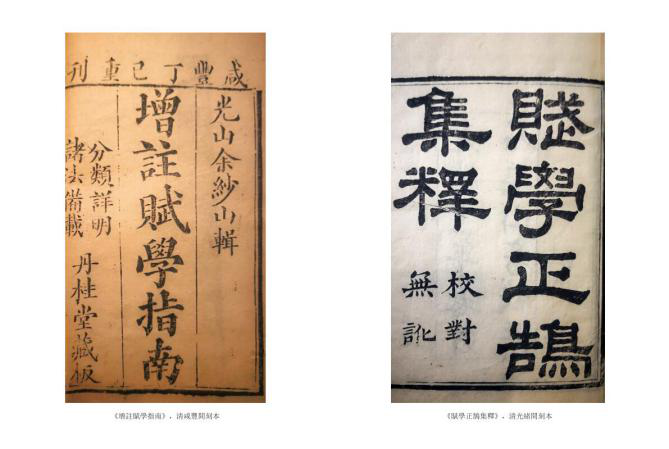 咸豐丁巳重刊
光山余紗山輯
增註賦學指南
分類詳明
諸法備載
丹桂堂藏板
《增註賦學指南》，清咸豐間刻本
賦學正鵠
集釋
校對
無訛
《賦學正鵠集釋》，清光緒間刻本